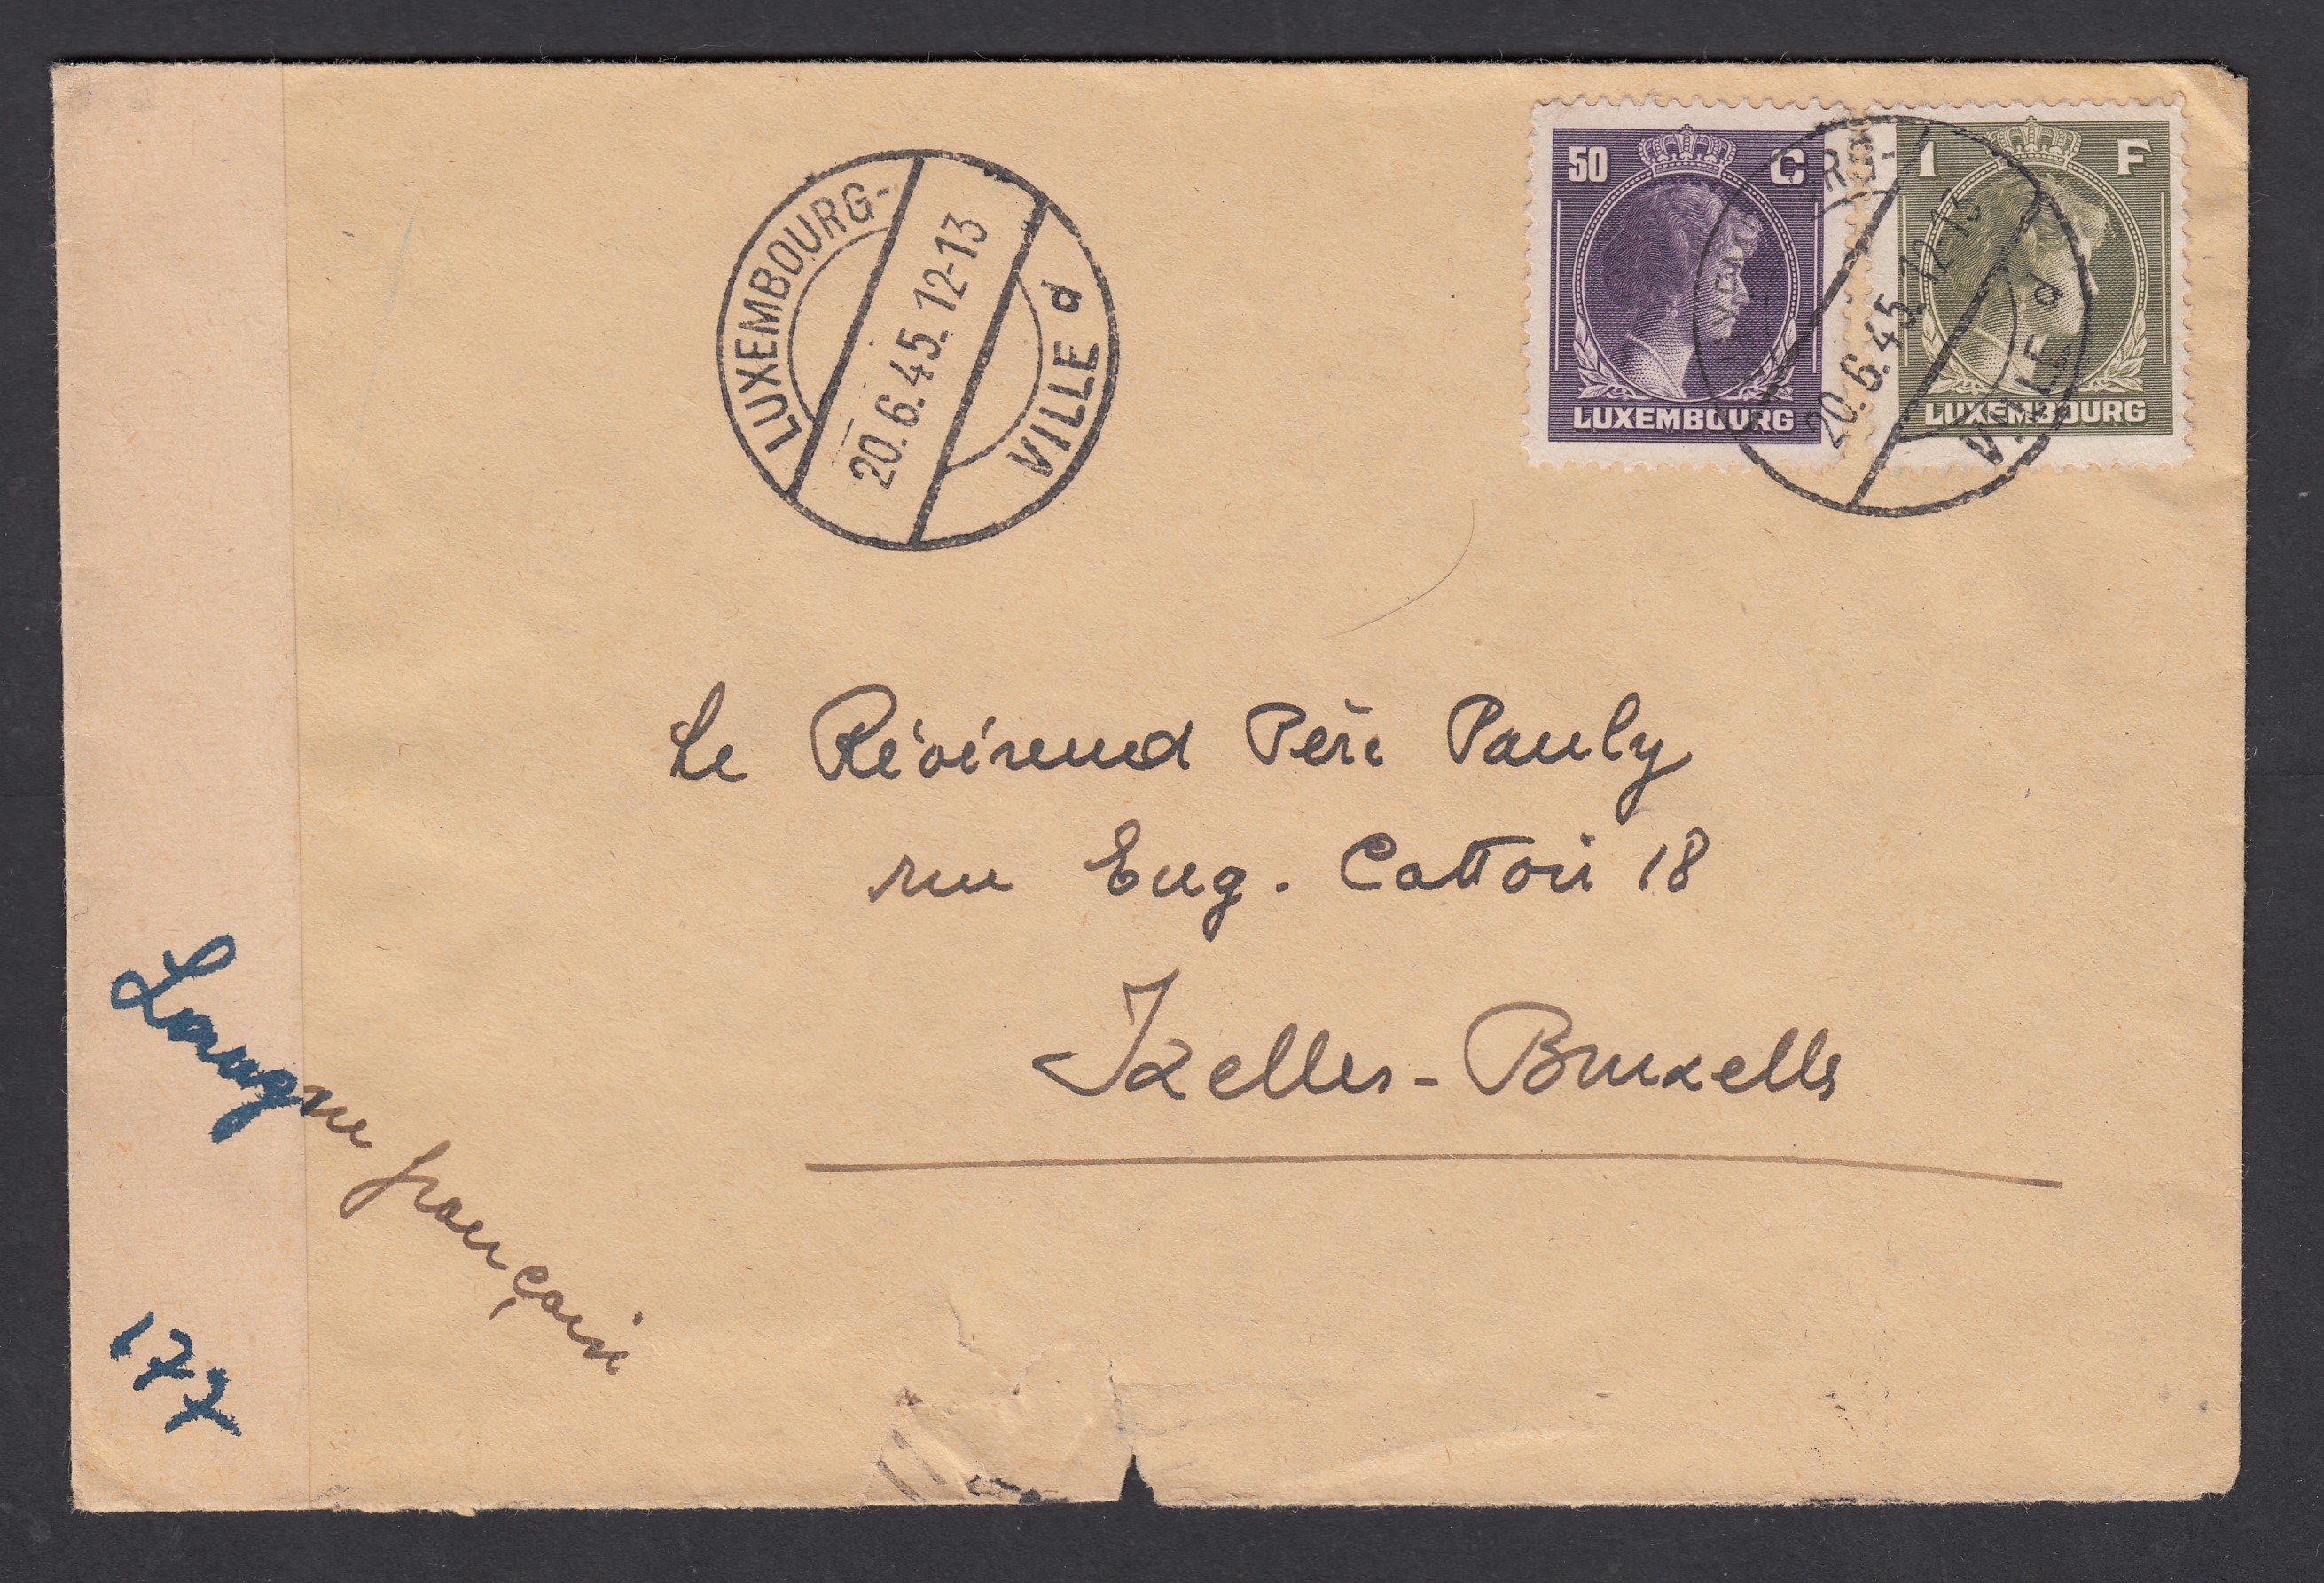 LUXEMBOURG-
20.6.45. 12-13
VILLE d
50 C
LUXEMBOURG
1 F
LUXEMBOURG
20.6.45. 12-1
VILLE d
Le Révérend Père Pauly
rue Eug. Cattoir 18
Ixelles-Bruxelles
Langue française
177